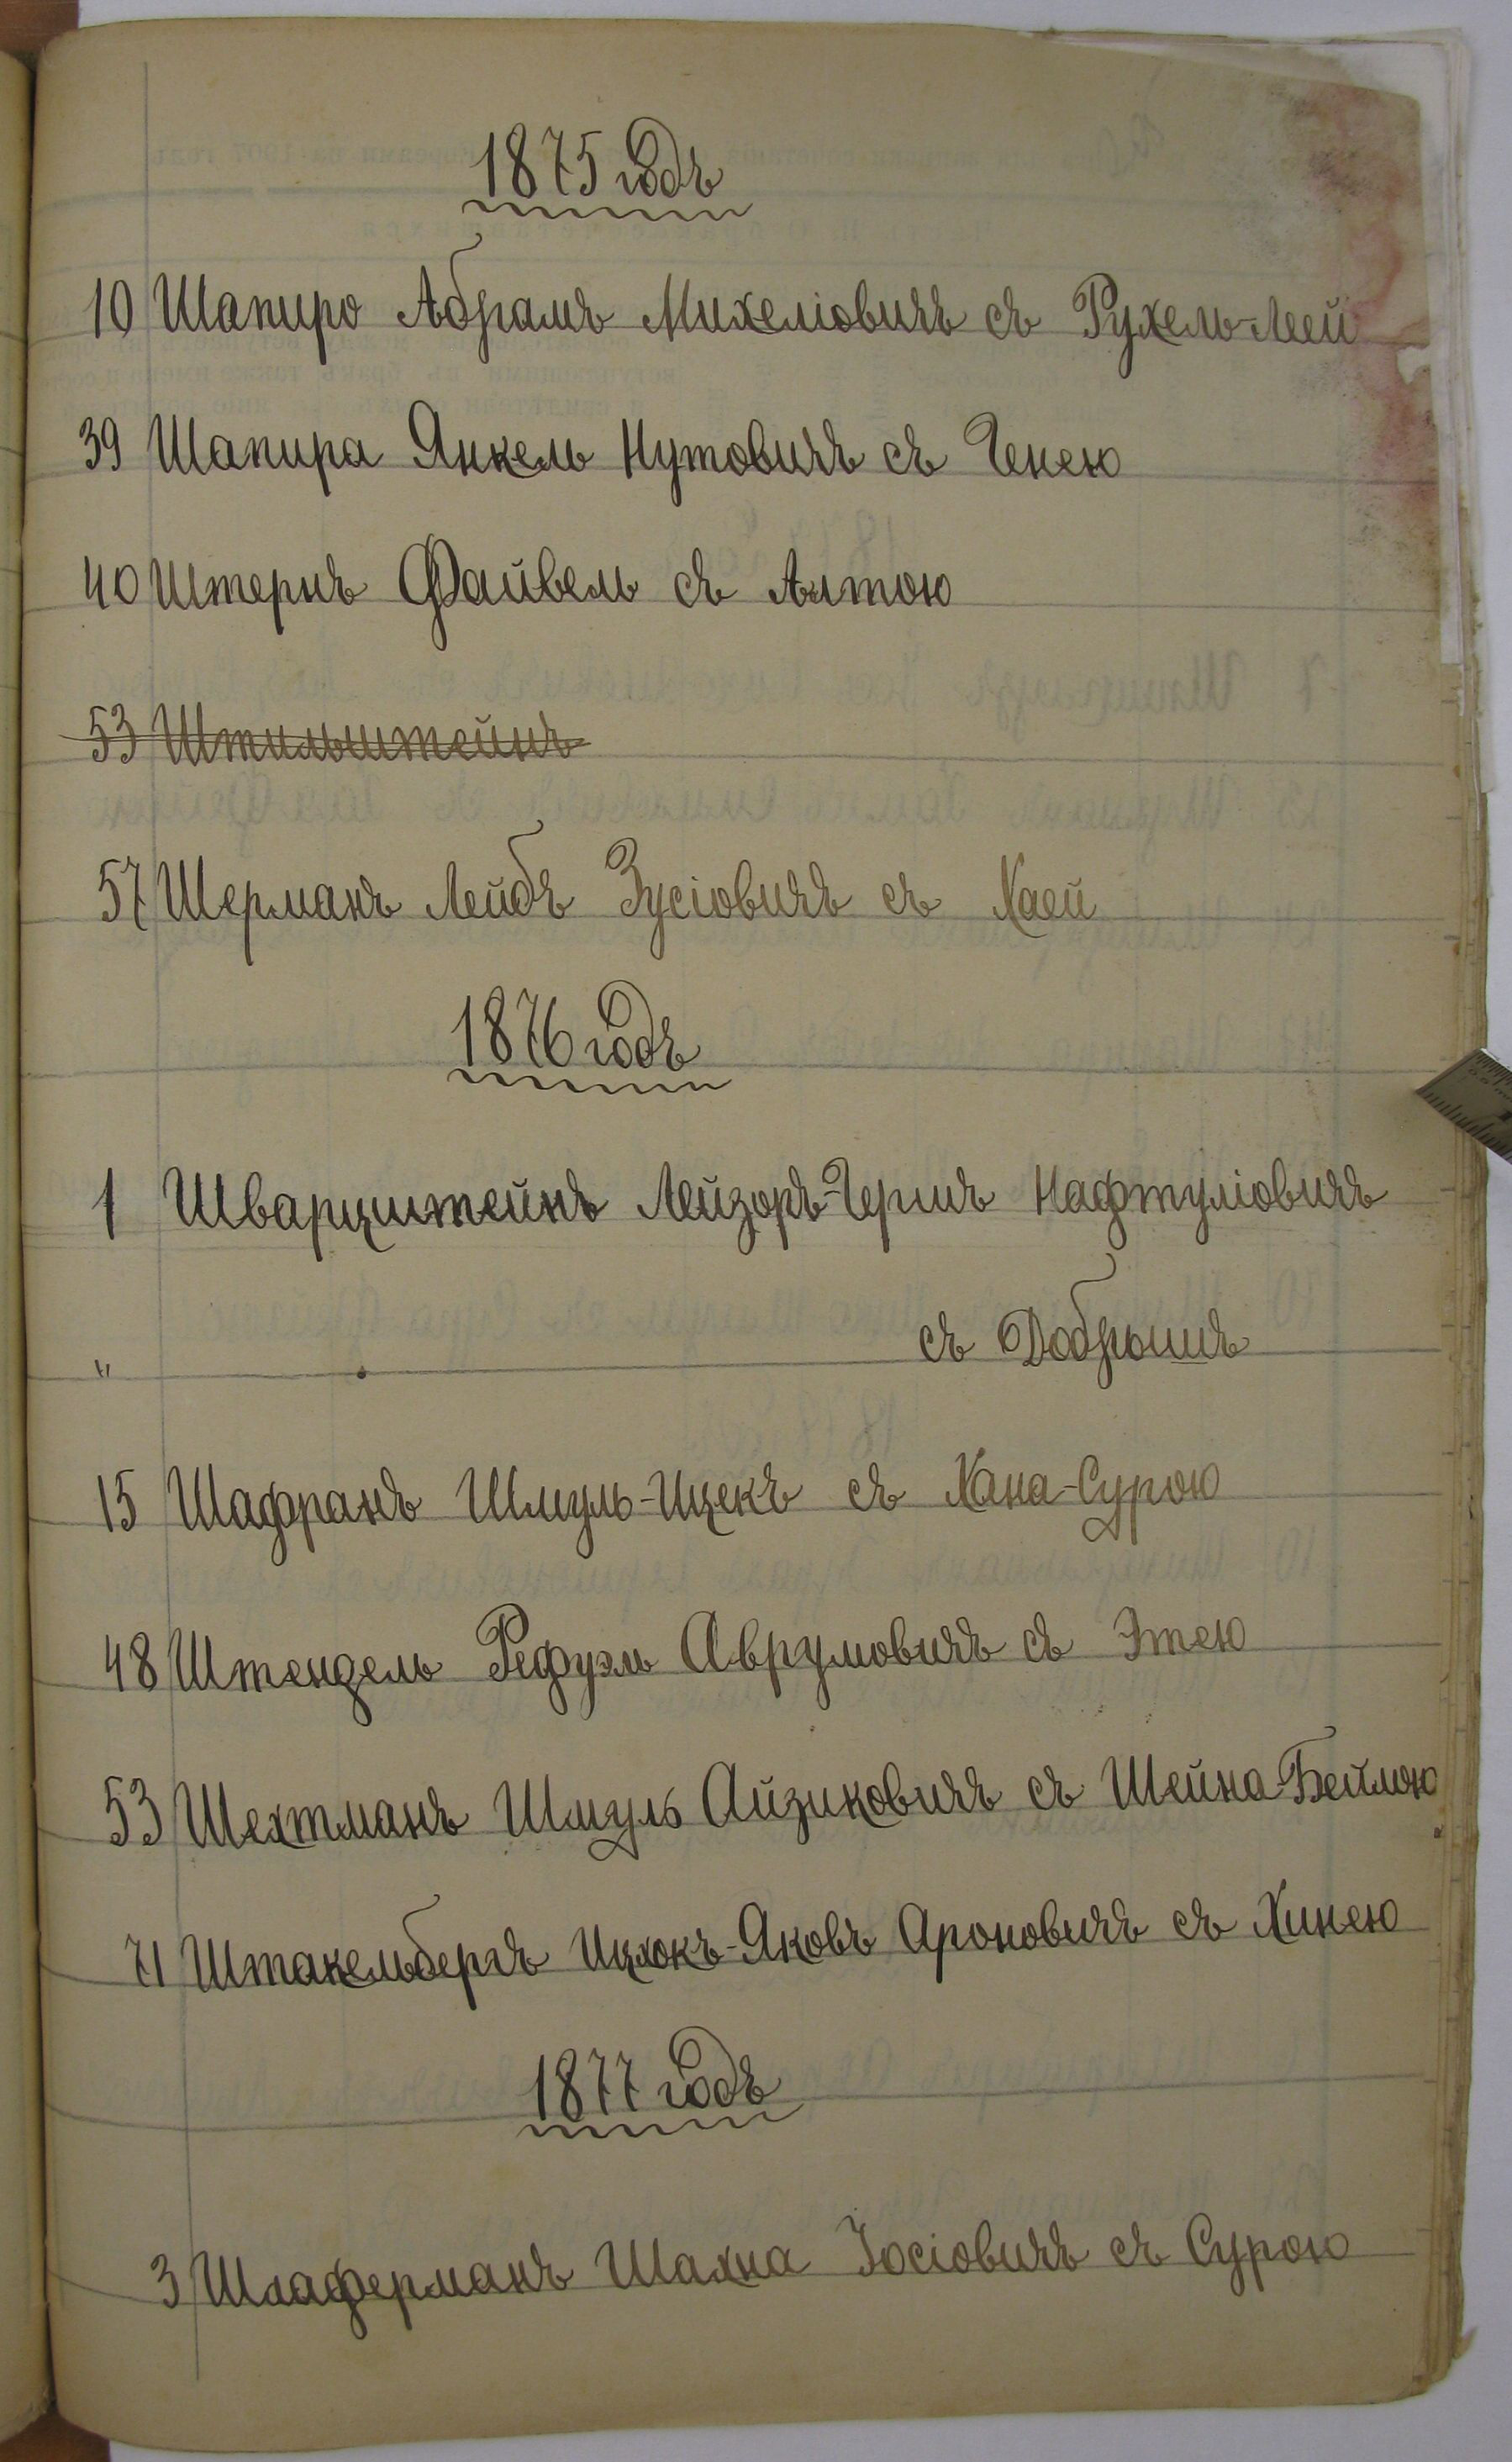 1875 годъ
10 Шапиро Абрамъ Михеліовичъ съ Рухель-Леей
39 Шапира Янкель Нутовичъ съ Генею
40 Штернъ Файвель съ Алтою
53 Штильштейнъ
57 Шерманъ Лейбъ Зусіовичъ съ Хаей
1876 годъ
1 Шварцштейнъ Лейзоръ-Гершъ Нафтуліовичъ
" съ Добрышъ
15 Шафранъ Шмуль-Ицекъ съ Хана-Сурою
48 Штендель Рефуэль Аврумовичъ съ Этею
53 Шехтманъ Шмуль Айзиковичъ съ Шейна-Бейлою
71 Штакельбергъ Ицхокъ-Яковъ Ароновичъ съ Хинею
1877 годъ
3 Шлаферманъ Шахна Іосіовичъ съ Сурою